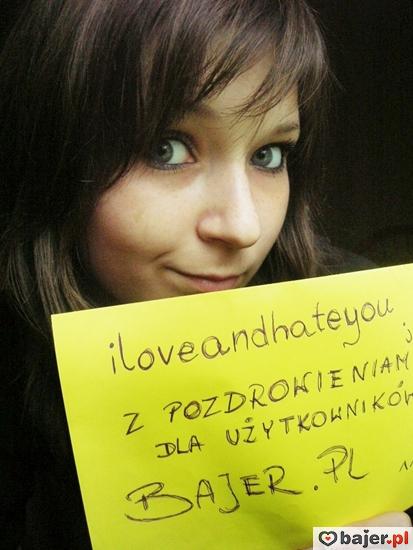 iloveandhateyou
Z POZDROWIENIAM
DLA UŻYTKOWNIKÓW
BAJER.PL
bajer.pl